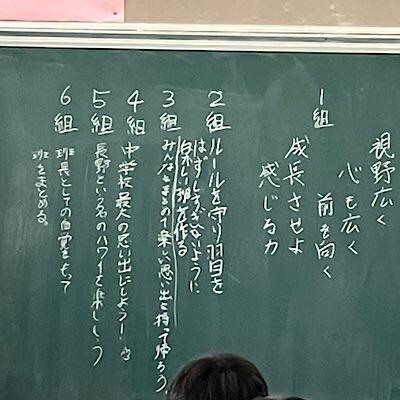 視野広く
心も広く
前を向く
1組
成長させよ
感じる力
2組
ルールを守り羽目を
はずしすぎないように
楽しい班を作る
3組
みんなをまとめて楽しい思い出を持って帰ろう。
4組
中学校最大の思い出にしよう!
5組
長野という名のハワイを楽しもう
6組
班長としての自覚をもって
班をまとめる。